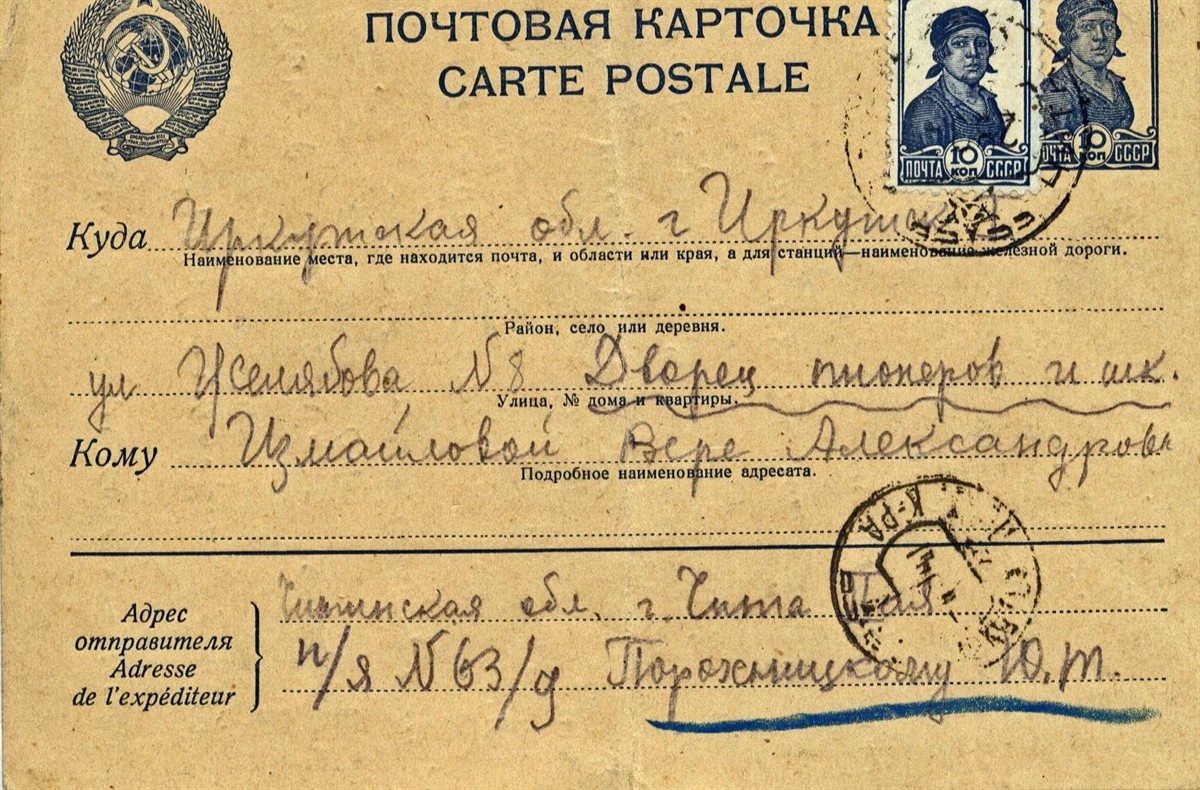 ПОЧТОВАЯ КАРТОЧКА
CARTE POSTALE
ПОЧТА 10 КОП СССР
ПОЧТА 10 КОП СССР
Куда Иркутская обл. г Иркутск
Наименование места, где находится почта, и области или края, а для станций—наименование железной дороги.
Район, село или деревня.
ул Желябова N 8 Дворец пионеров и шк.
Улица, № дома и квартиры.
Кому Измайловой Вере Александровн
Подробное наименование адресата.
Адрес отправителя
Adresse de l'expéditeur
Читинская обл. г. Чита
п/я N 63/9 Порохницкому Ю.Т.